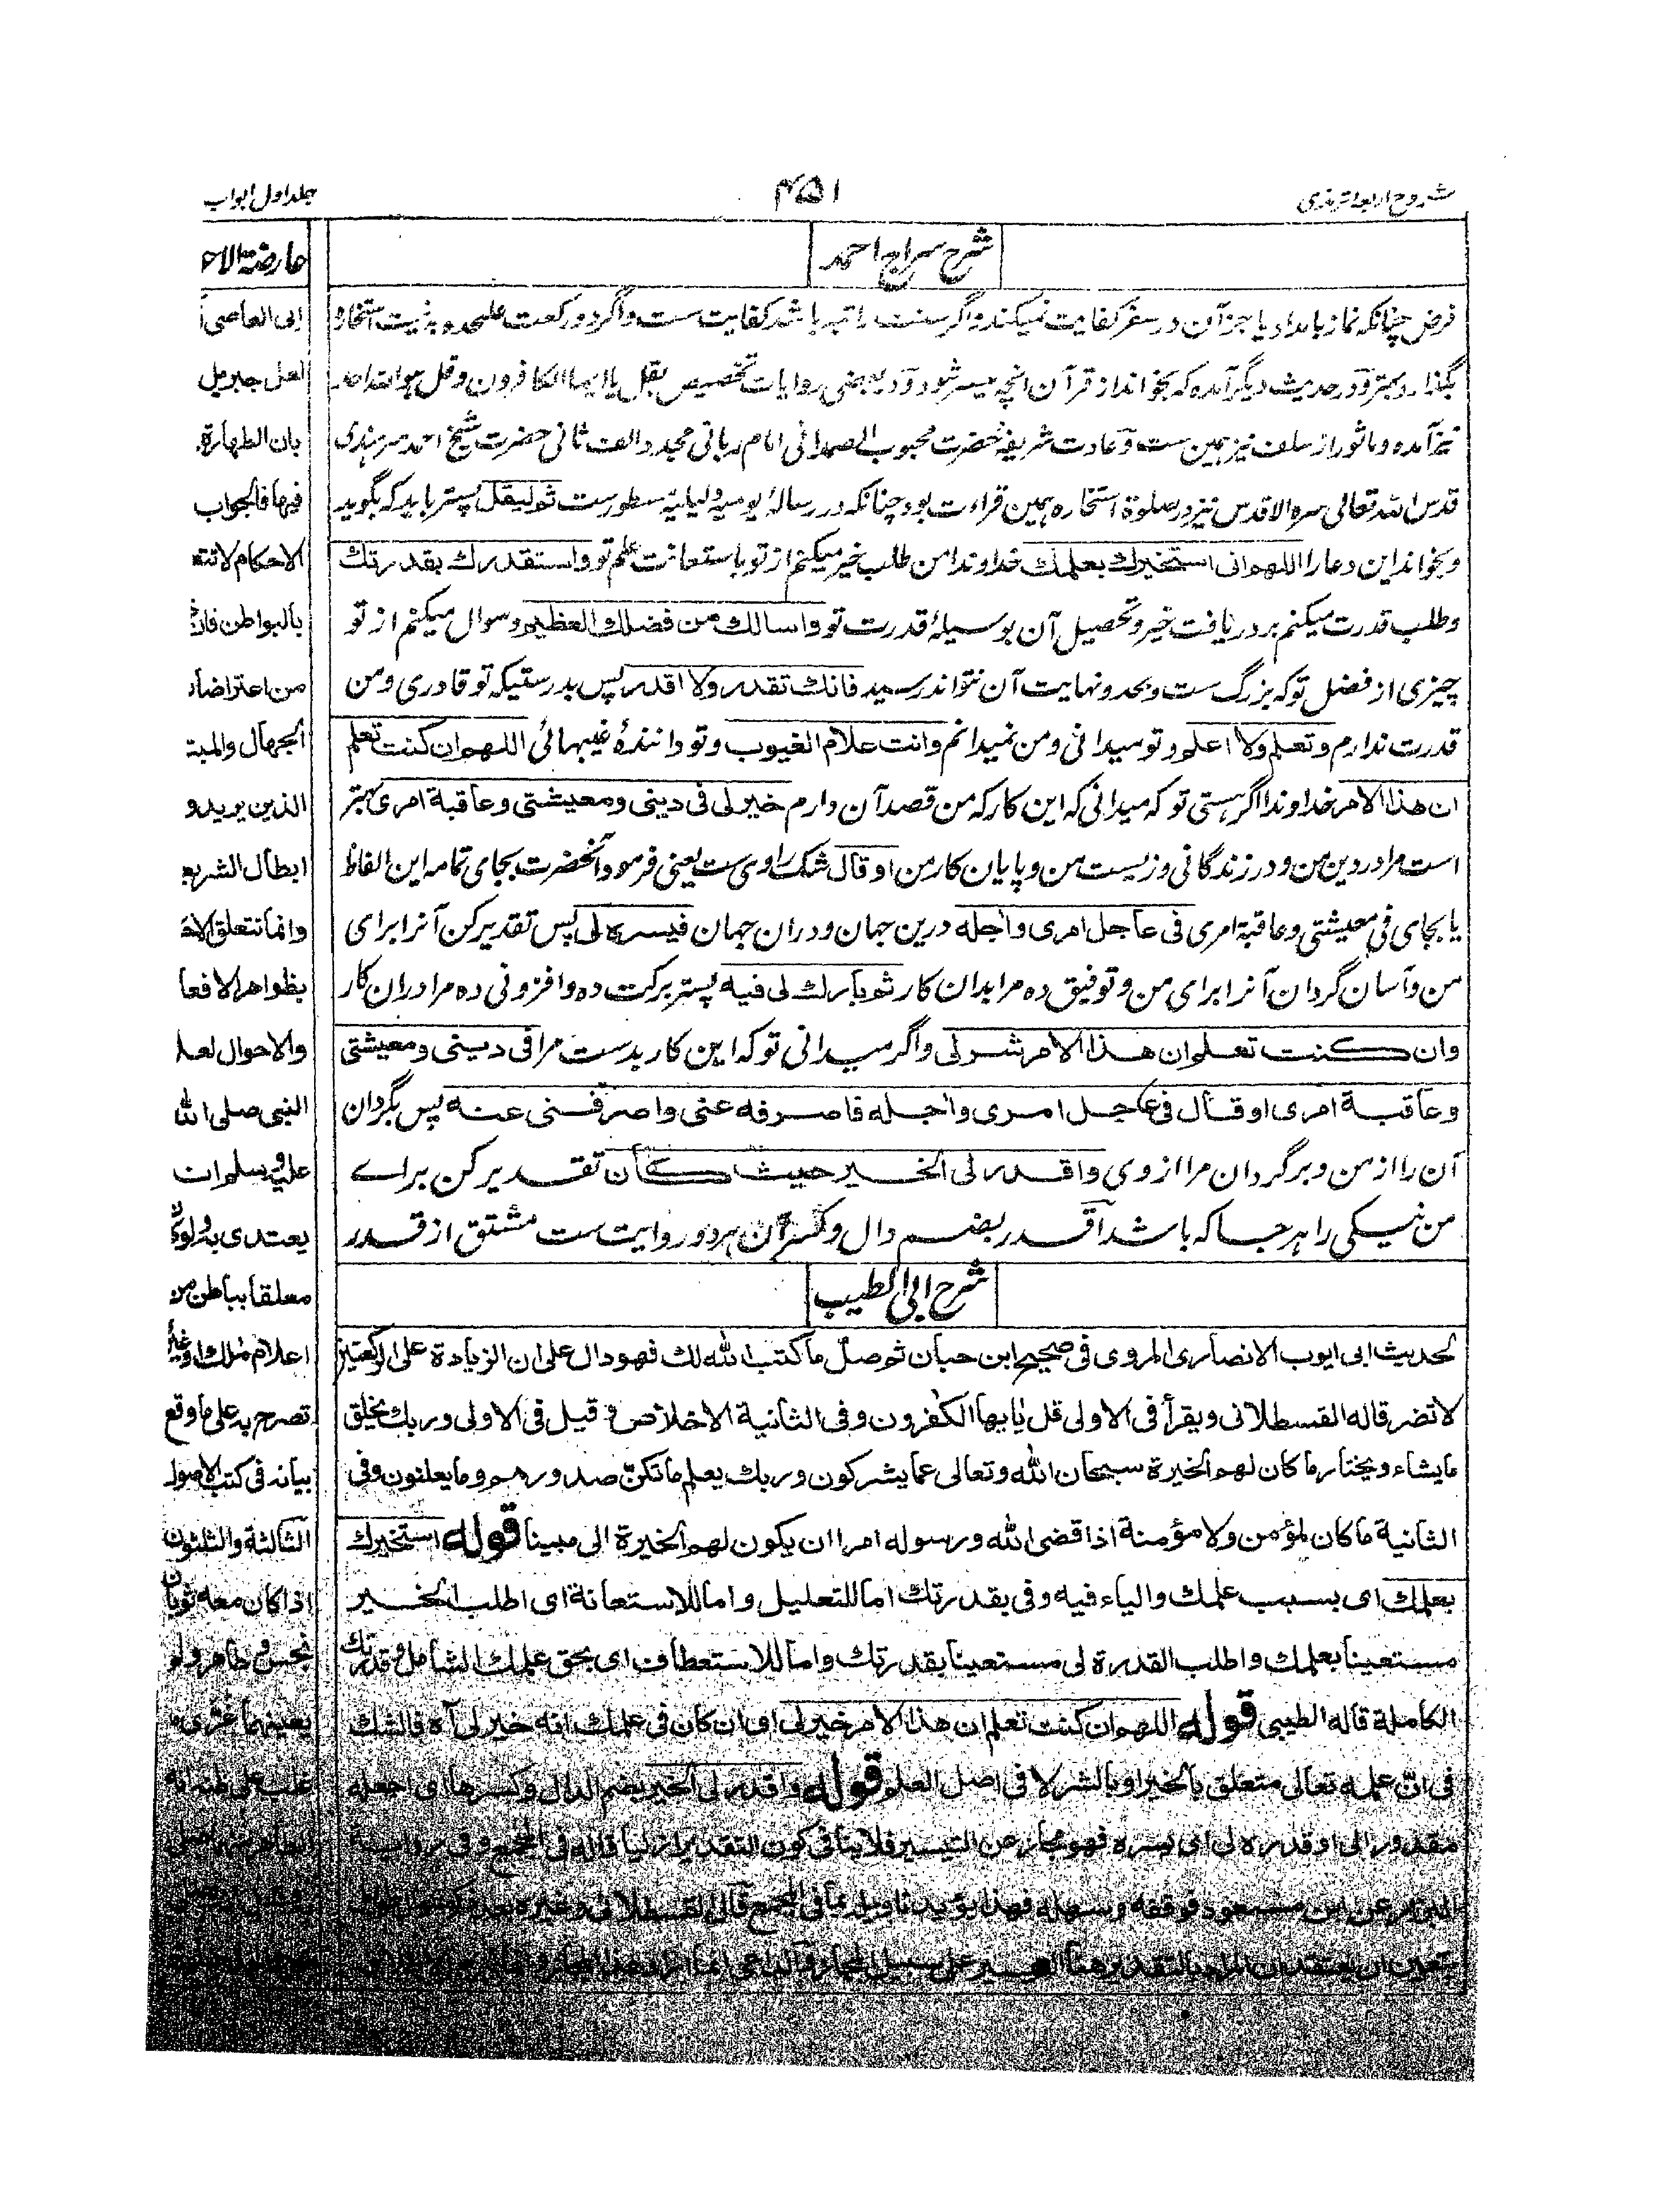 شروح اربعہ ترمذی
۴۵۱
جلد اول ابواب
شرح سراج احمد
فرض چنانکہ نماز بامداد یا جز آن در سفر کفایت نمیکند و اگر سنت راتبہ باشد کفایت ست و اگر دو رکعت علیحدہ بہ نیت استخارہ
بگذارد بہتر و در حدیث دیگر آمدہ کہ بخواند از قرآن انچہ میسر شود و در بعضی روایات تخصیص بقل یا ایہا الکافرون و قل ہو اللہ احد
نیز آمدہ و ماثور از سلف نیز ہمین ست و عادت شریفہ حضرت محبوب الصمدانی امام ربانی مجدد الف ثانی حضرت شیخ احمد سرہندی
قدس اللہ تعالی سرہ الاقدس نیز در صلوة استخارہ ہمین قراءت بود چنانکہ در رسالۂ یومیہ و لیلیہ مسطورست ثم ليقل پستر باید کہ بگوید
و بخواند این دعا را اللهم انی استخیرك بعلمك خداوندا من طلب خیر میکنم از تو باستعانت علم تو واستقدرك بقدرتك
و طلب قدرت میکنم بر دریافت خیر و تحصیل آن بوسیلۂ قدرت تو واسالك من فضلك العظیم و سوال میکنم از تو
چیزی از فضل تو کہ بزرگ ست و بحد و نہایت آن نتواند رسید فانك تقدر ولا اقدر پس بدرستیکہ تو قادری و من
قدرت ندارم وتعلم ولا اعلم و تو میدانی و من نمیدانم وانت علام الغیوب و تو دانندۂ غیبہائی اللهم ان کنت تعلم
ان هذا الامر خداوندا اگر ہستی تو کہ میدانی کہ این کار کہ من قصد آن دارم خیر لی فی دینی ومعیشتی وعاقبة امری بہتر
است مرا در دین من و در زندگانی و زیست من و پایان کار من او قال شک راوی ست یعنی فرمود آنحضرت بجای تمامہ این الفاظ
یا بجای فی معیشتی وعاقبة امری فی عاجل امری واجله درین جہان و دران جہان فیسره لی پس تقدیر کن آنرا برای
من و آسان گردان آنرا برای من و توفیق دہ مرا بدان کار ثم بارك لی فیه پستر برکت دہ و افزونی دہ مرا دران کار
وان کنت تعلم ان هذا الامر شر لی و اگر میدانی تو کہ این کار بدست مرا فی دینی ومعیشتی
وعاقبة امری او قال فی عاجل امری واجله فاصرفه عنی واصرفنی عنه پس بگردان
آن را از من و برگردان مرا از وی واقدر لی الخیر حیث کان تقدیر کن برای
من نیکی را ہر جا کہ باشد اقدر بضم دال و کسر آن ہر دو روایت ست مشتق از قدر
شرح ابی الطیب
لحديث ابی ایوب الانصاری المروی فی صحیح ابن حبان ثم صل ما کتب الله لك فهو دال علی ان الزیادة علی الرکعتین
لا تضر قاله القسطلانی ویقرأ فی الاولی قل یایها الکفرون وفی الثانیة الاخلاص وقیل فی الاولی وربك یخلق
ما یشاء ویختار ما کان لهم الخیرة سبحان الله وتعالی عما یشرکون وربك یعلم ما تکن صدورهم وما یعلنون وفی
الثانیة ما کان لمؤمن ولا مؤمنة اذا قضی الله ورسوله امرا ان یکون لهم الخیرة الی مبینا قوله استخیرك
بعلمك ای بسبب علمك والباء فیه وفی بقدرتك اما للتعلیل واما للاستعانة ای اطلب الخیر
مستعینا بعلمك واطلب القدرة لی مستعینا بقدرتك واما للاستعطاف ای بحق علمك الشامل وقدرتك
الکاملة قاله الطیبی قوله اللهم ان کنت تعلم ان هذا الامر خیر لی ای ان کان فی علمك انه خیر لی آه فالشك
فی ان علمه تعالی متعلق بالخیر او بالشر لا فی اصل العلم قوله واقدر لی الخیر بضم الدال وکسرها ای اجعله
مقدورا لی او قدره لی ای یسره فهو مجاز عن التیسیر فلا ینافی کون التقدیر ازلیا قاله فی المجمع وفی روایة
عن ابن مسعود فوفقه وسهله فهذا یؤید تاویل ما فی المجمع قال القسطلانی وغیره
ان یعتقد ان المراد بالتقدیر هنا التیسیر علی سبیل المجاز
عارضة الاح
الی العاصی
لعل جبریل
بان الطهارة
فیها فالجواب
الاحکام لا تتع
بالبواطن فان
من اعتراضا
الجهال والمبت
الذین یریدو
ابطال الشریع
وانما تتعلق الاح
بظواهر الافعا
والاحوال لعل
النبی صلی الله
علیه وسلم ان
یعتدی به ولو کان
معلقا بباطن من
اعلام ملك او غیره
تصرح به علی ما وقع
بیانه فی کتب الاصول
الثالثة والثلثون
اذا کان معه ثوبان
نجس وطاهر ولو